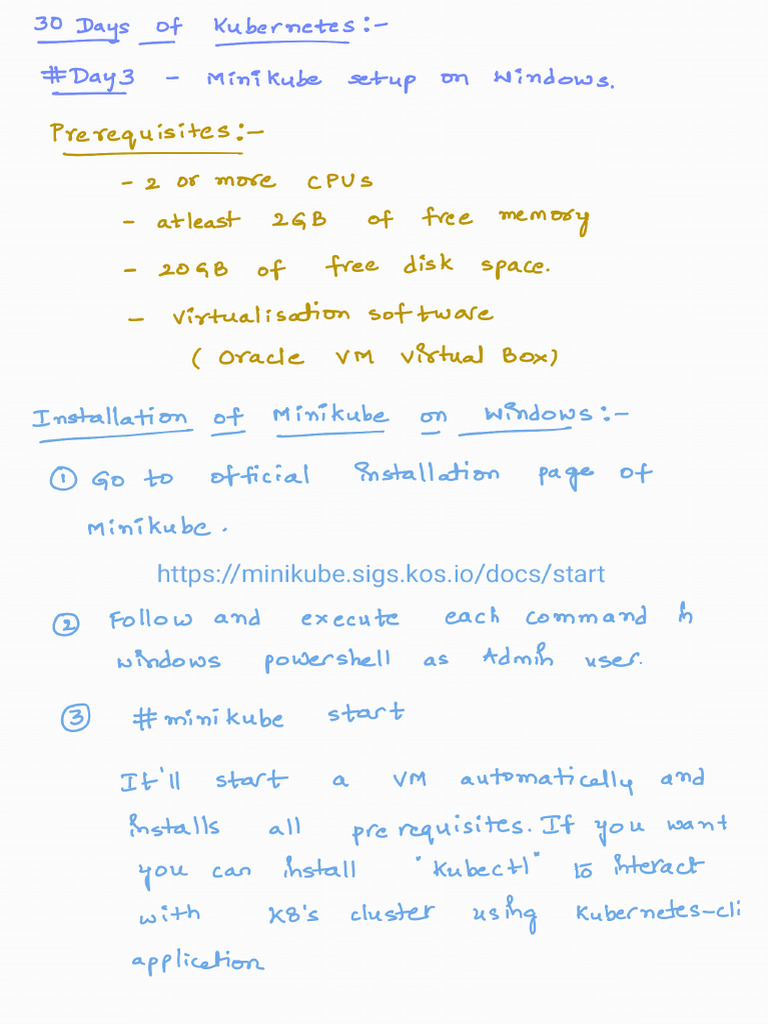 30 Days of Kubernetes:-
#Day3 - Minikube setup on Windows.
Prerequisites:-
- 2 or more CPUs
- atleast 2GB of free memory
- 20GB of free disk space.
- Virtualisation software
( Oracle VM Virtual Box)
Installation of Minikube on Windows:-
① Go to official installation page of
Minikube.
https://minikube.sigs.kos.io/docs/start
② Follow and execute each command in
windows powershell as Admin user.
③ #minikube start
It'll start a VM automatically and
installs all prerequisites. If you want
you can install "Kubectl" to interact
with K8's cluster using Kubernetes-cli
application